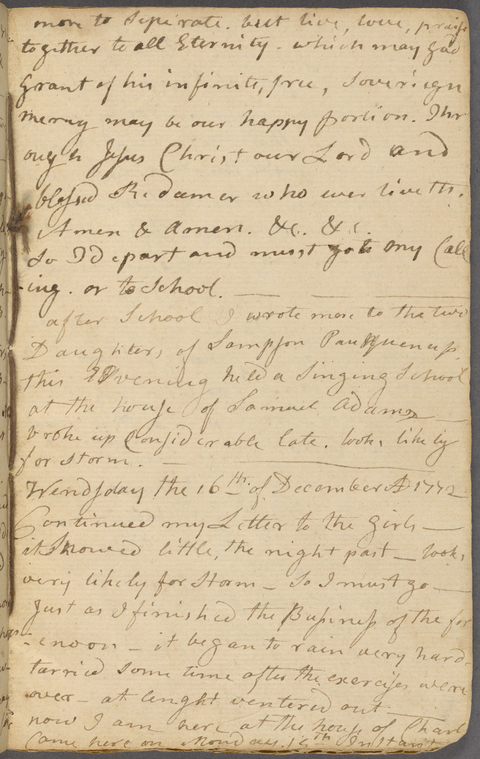 more to Seperate. but live, love, praise
together to all Eternity. which may god
Grant of his infinite, free, Sovereign
mercy may be our happy portion. Thr
ough Jesus Christ our Lord and
blessed Redamer who ever liveth.
Amen & Amen. &c. &c.
So I Depart and must go to my Call
ing. or to School.
after School I wrote more to the two
Daughters of Sampson
this Evening held a Singing School
at the house of Samuel Adams
broke up Considerable late. looks likely
for storm.
Wendsday the 16th. of December AD 1772
Continued my Letter to the Girls —
it Snowed little, the night past — looks
very likely for Storm — So I must go —
Just as I finished the Business of the for
enoon — it began to rain very hard
tarried some time after the exercises were
over — at lenght ventered out —
now I am here at the house of Charl
Came here on Monday. Instant